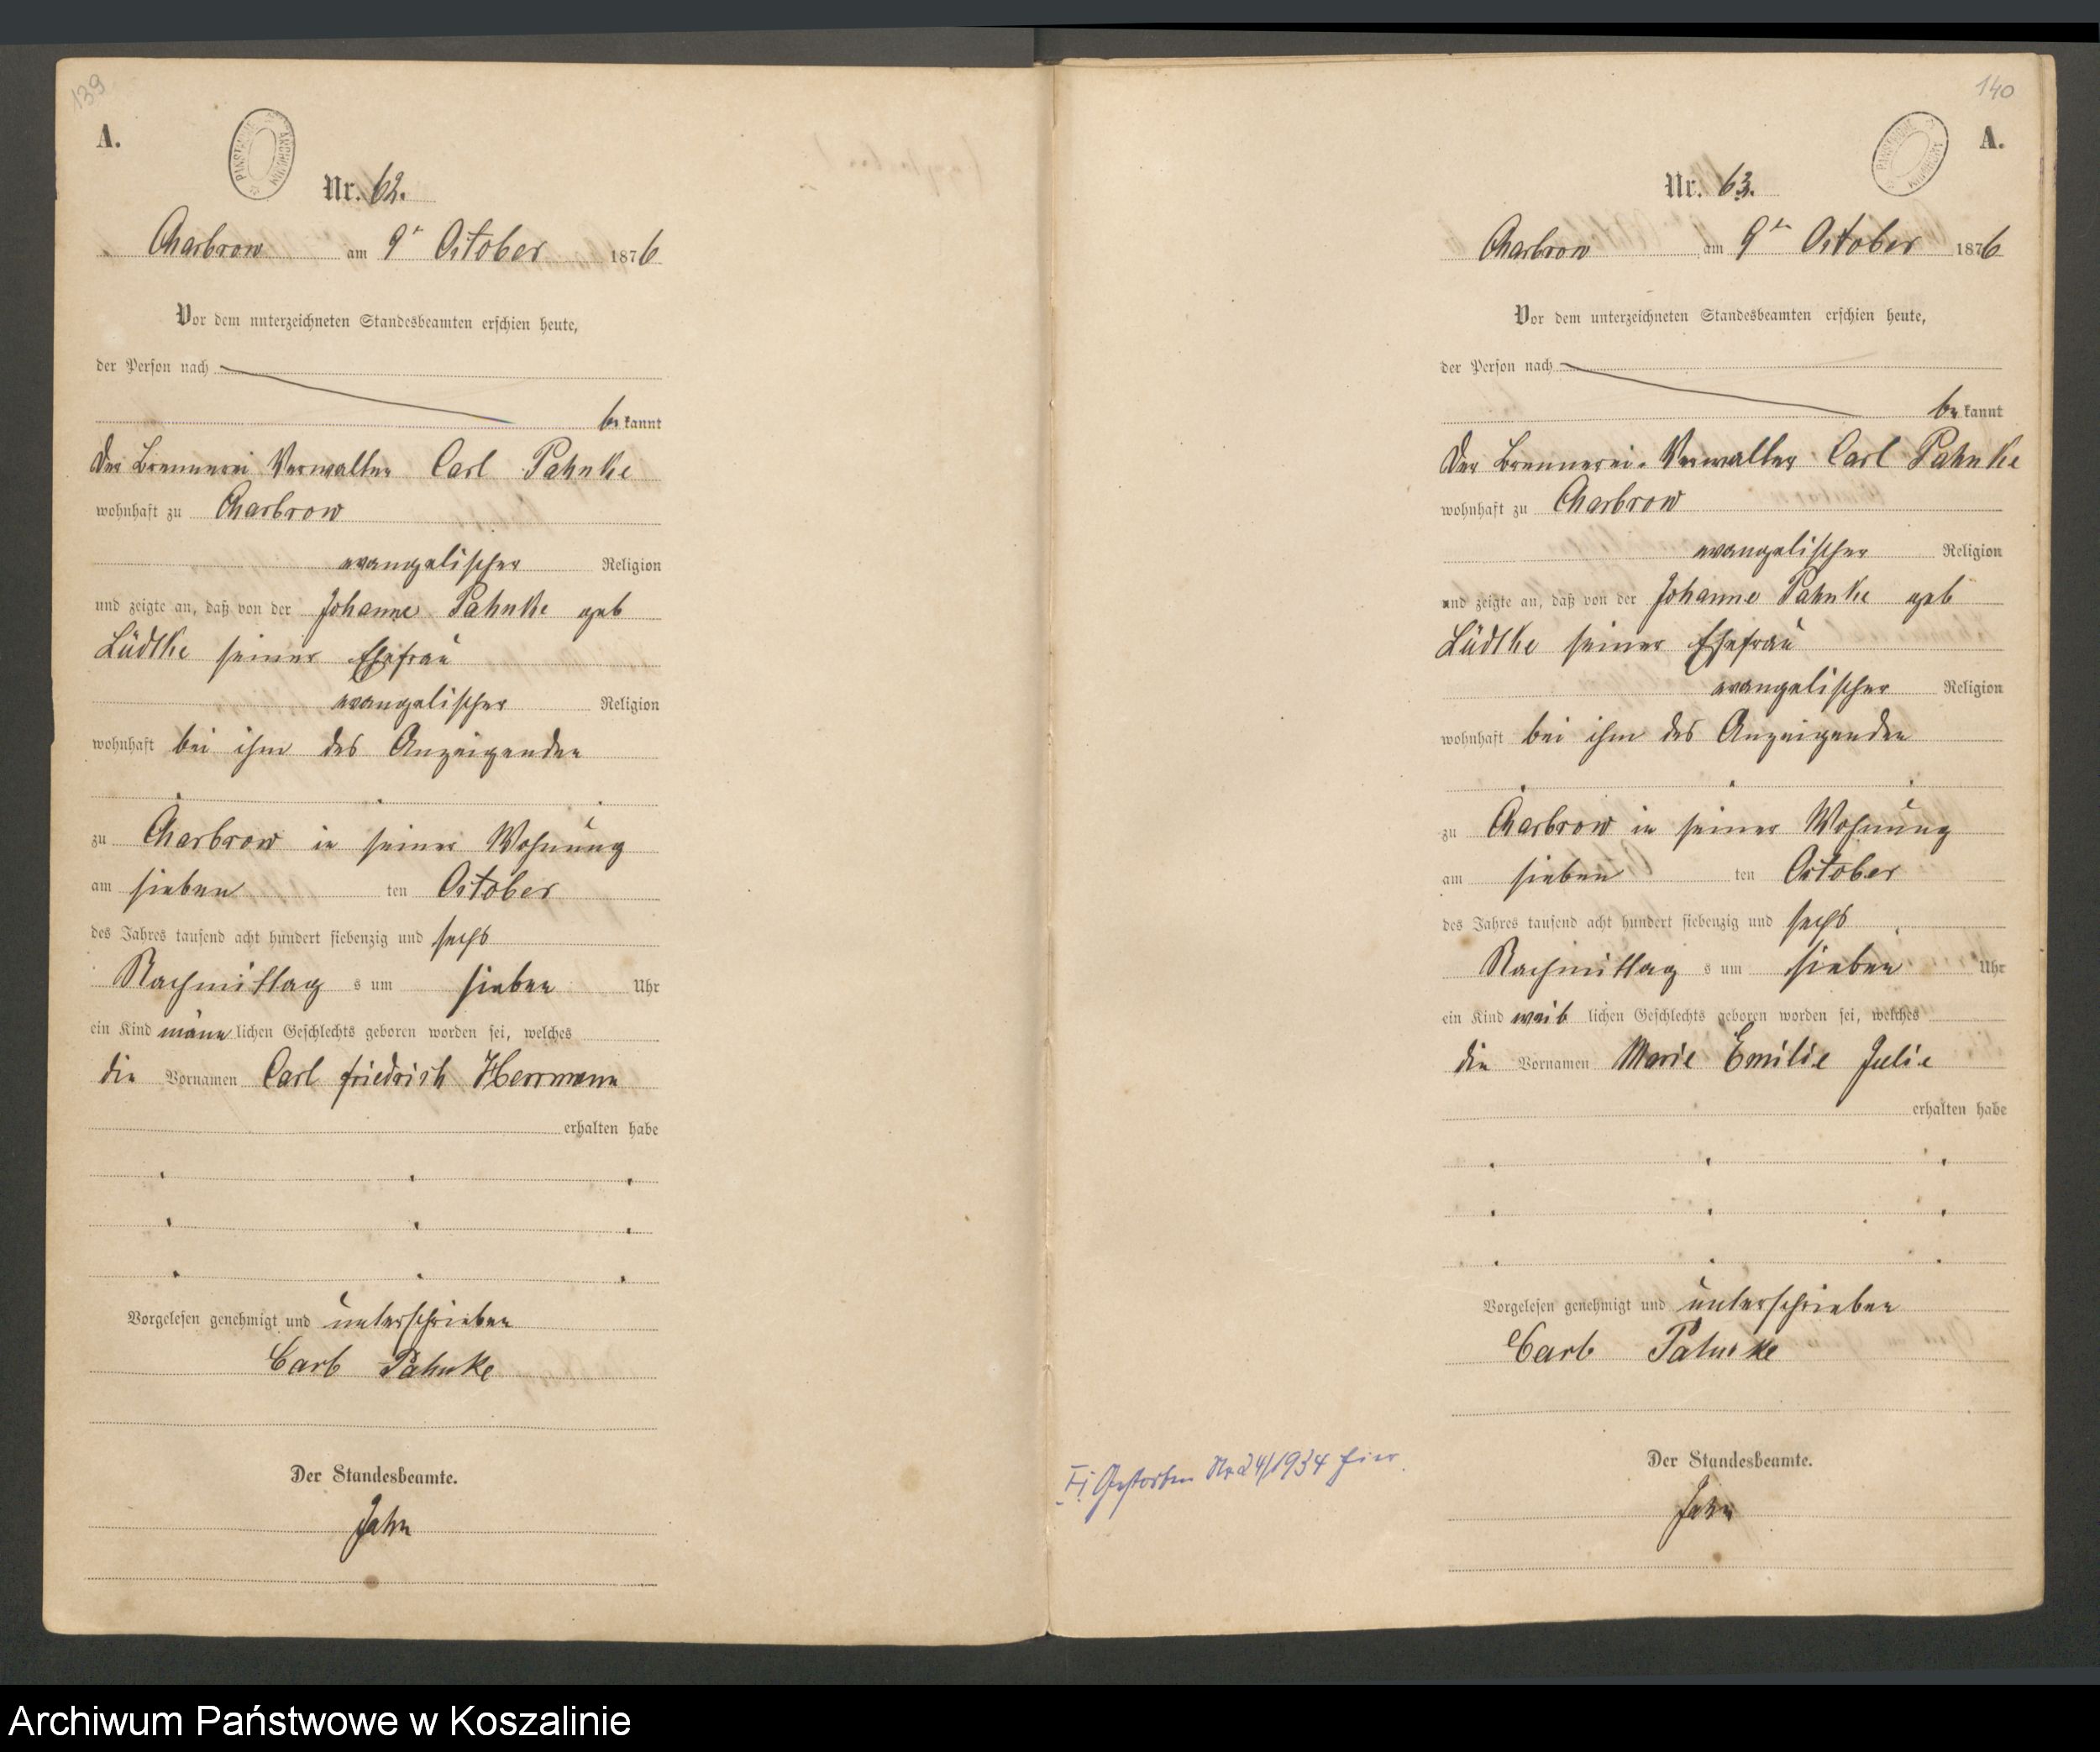 139
A.
PAŃSTWOWE ARCHIWUM
Nr. 62.
Charbrow am 9t October 1876
Vor dem unterzeichneten Standesbeamten erschien heute,
der Person nach
bekannt
Der Brennerei Verwalter Carl Pahnke
wohnhaft zu Charbrow
evangelischer Religion
und zeigte an, daß von der Johanne Pahnke geb
Lüdtke seiner Ehefrau
evangelischer Religion
wohnhaft bei ihm des Anzeigenden
zu Charbrow in seiner Wohnung
am sieben ten October
des Jahres tausend acht hundert siebenzig und sechs
Nachmittag s um sieben Uhr
ein Kind männlichen Geschlechts geboren worden sei, welches
die Vornamen Carl Friedrich Herrmann
erhalten habe
Vorgelesen genehmigt und unterschrieben
Carl Pahnke
Der Standesbeamte.
Jahn
140
A.
PAŃSTWOWE ARCHIWUM
Nr. 63.
Charbrow am 9ten October 1876
Vor dem unterzeichneten Standesbeamten erschien heute,
der Person nach
bekannt
Der Brennerei-Verwalter Carl Pahnke
wohnhaft zu Charbrow
evangelischer Religion
und zeigte an, daß von der Johanne Pahnke geb
Lüdtke seiner Ehefrau
evangelischer Religion
wohnhaft bei ihm des Anzeigenden
zu Charbrow in seiner Wohnung
am sieben ten October
des Jahres tausend acht hundert siebenzig und sechs
Nachmittag s um sieben Uhr
ein Kind weiblichen Geschlechts geboren worden sei, welches
die Vornamen Marie Emilie Julie
erhalten habe
Vorgelesen genehmigt und unterschrieben
Carl Pahnke
Gestorben Nr. 24/1934 hier.
Der Standesbeamte.
Jahn
Archiwum Państwowe w Koszalinie